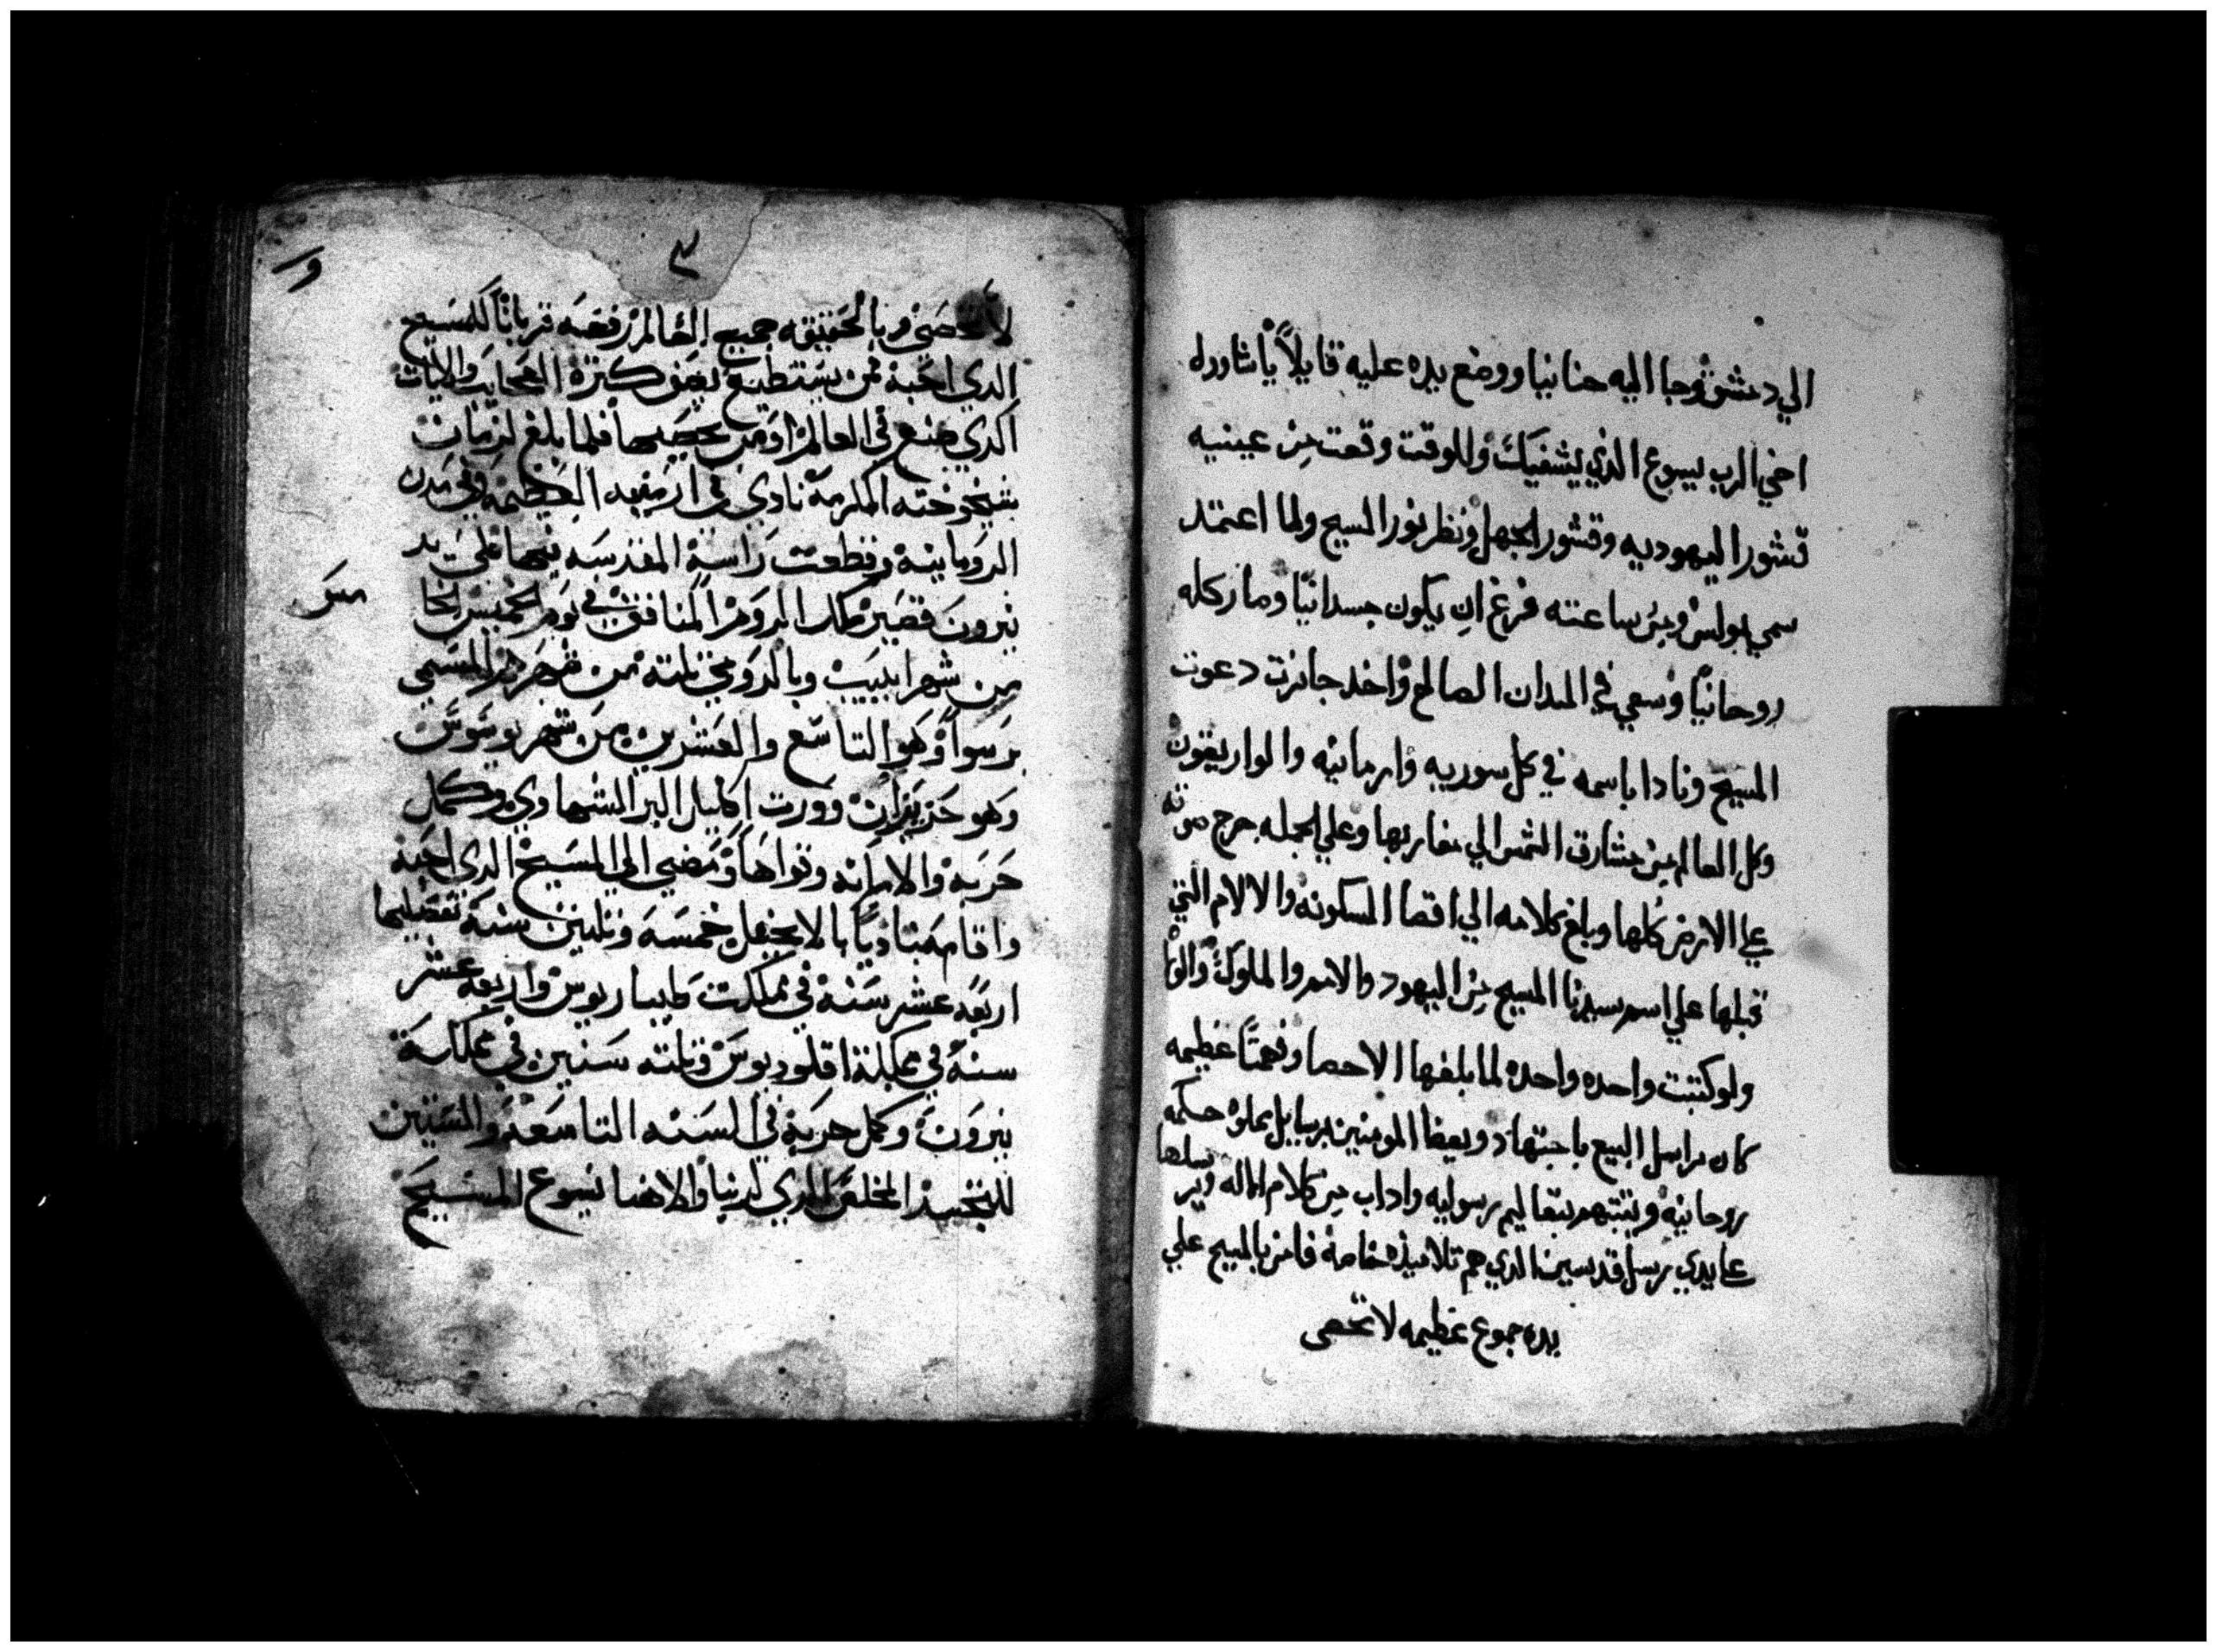 الي دمشق وجا اليه حنانيا ووضع يده عليه قايلاً يا شاول
اخي الرب يسوع الذي يشفيك وللوقت وقعت من عينيه
قشور اليهوديه وقشور الجهل ونظر نور المسيح ولما اعتمد
سمي بولس ومن ساعته فرغ ان يكون جسدانيًا وصار كله
روحانيًا وسعي في الميدان الصالح واخد جايزت دعوت
المسيح ونادا باسمه في كل سوريه وارمانيه والواريقون
وكل العالم من مشارق الشمس الي مغاربها وعلي الجمله خرج صوته
علي الارض كلها وبلغ كلامه الي اقصا المسكونه والالام التي
قبلها علي اسم سيدنا المسيح من اليهود والامم والملوك والولا
ولو كتبت واحده واحده لما بلغها الاحصا ونعمتًا عظيمه
كان يراسل البيع باجتهاد ويعظ المومنين برسايل مملوه حكمه
روحانيه ويثبتهم بتعاليم رسوليه واداب من كلام الله ويرسلها
علي يدي رسل قديسين الدي هم تلاميذه خاصة فامن بالمسيح علي
يده جموع عظيمه لا تحصى
٣
و
لا تحصى وبالحقيقه جميع العالم رفعه قربانًا للمسيح
الدي احبه فمن يستطيع يصف كترة العجايب والايات
الدي صنع في العالم او من يحصيها فلما بلغ لزمان
شيخوخته المكرمة نادي في ارمنيه العظيمة وفي مدن
الرومانية وقطعت راسة المقدسه فيها علي يد
نيرون قصير ملك الروم المنافق في يوم الخميس الخا
من شهر ابيب وبالرومي تلته من شهرهم المسمي
برسوا وهو التاسع والعشرين من شهر يونيوس
وهو حزيران وورت اكليل البر السماوي وكمل
حربه والامانه وتواها ومضي الي المسيح الدي احبه
واقام مناديًا بالانجيل خمسه وتلتين سنة تفصيلها
اربعه عشر سنة في مملكت طيباريوس واربعه عشر
سنة في مملكة اقلوديوس وتلته سنين في مملكة
نيرون وكمل حربه في السنه التاسعه والستين
للتجسد المخلص الدي لربنا والاهنا يسوع المسيح